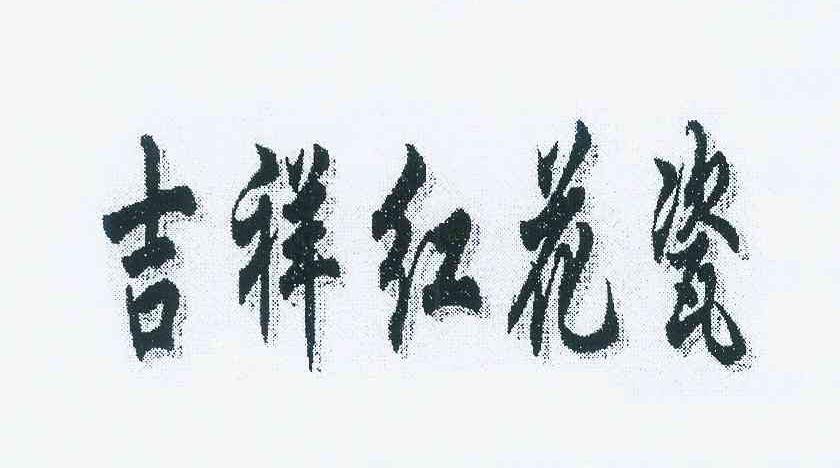 吉祥红花瓷